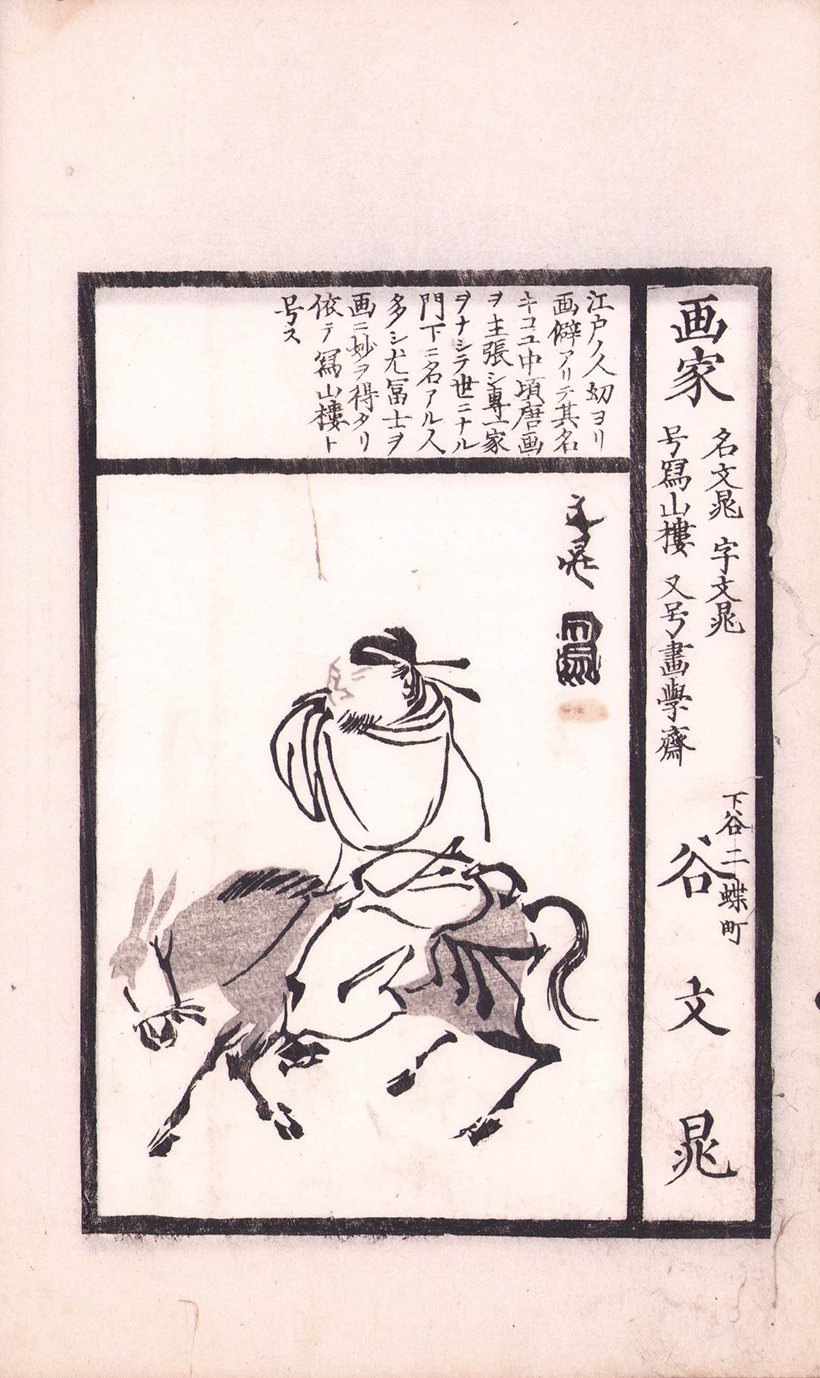 画家
名文晁 字文晁
号寫山樓 又号畫學齋
下谷二蝶町
谷文晁
江戸ノ人幼ヨリ
画僻アリテ其名
キコユ中頃唐画
ヲ主張シ專一家
ヲナシテ世ニナル
門下ニ名アル人
多シ尤冨士ヲ
画ニ妙ヲ得タリ
依テ寫山樓ト
号ス
文晁